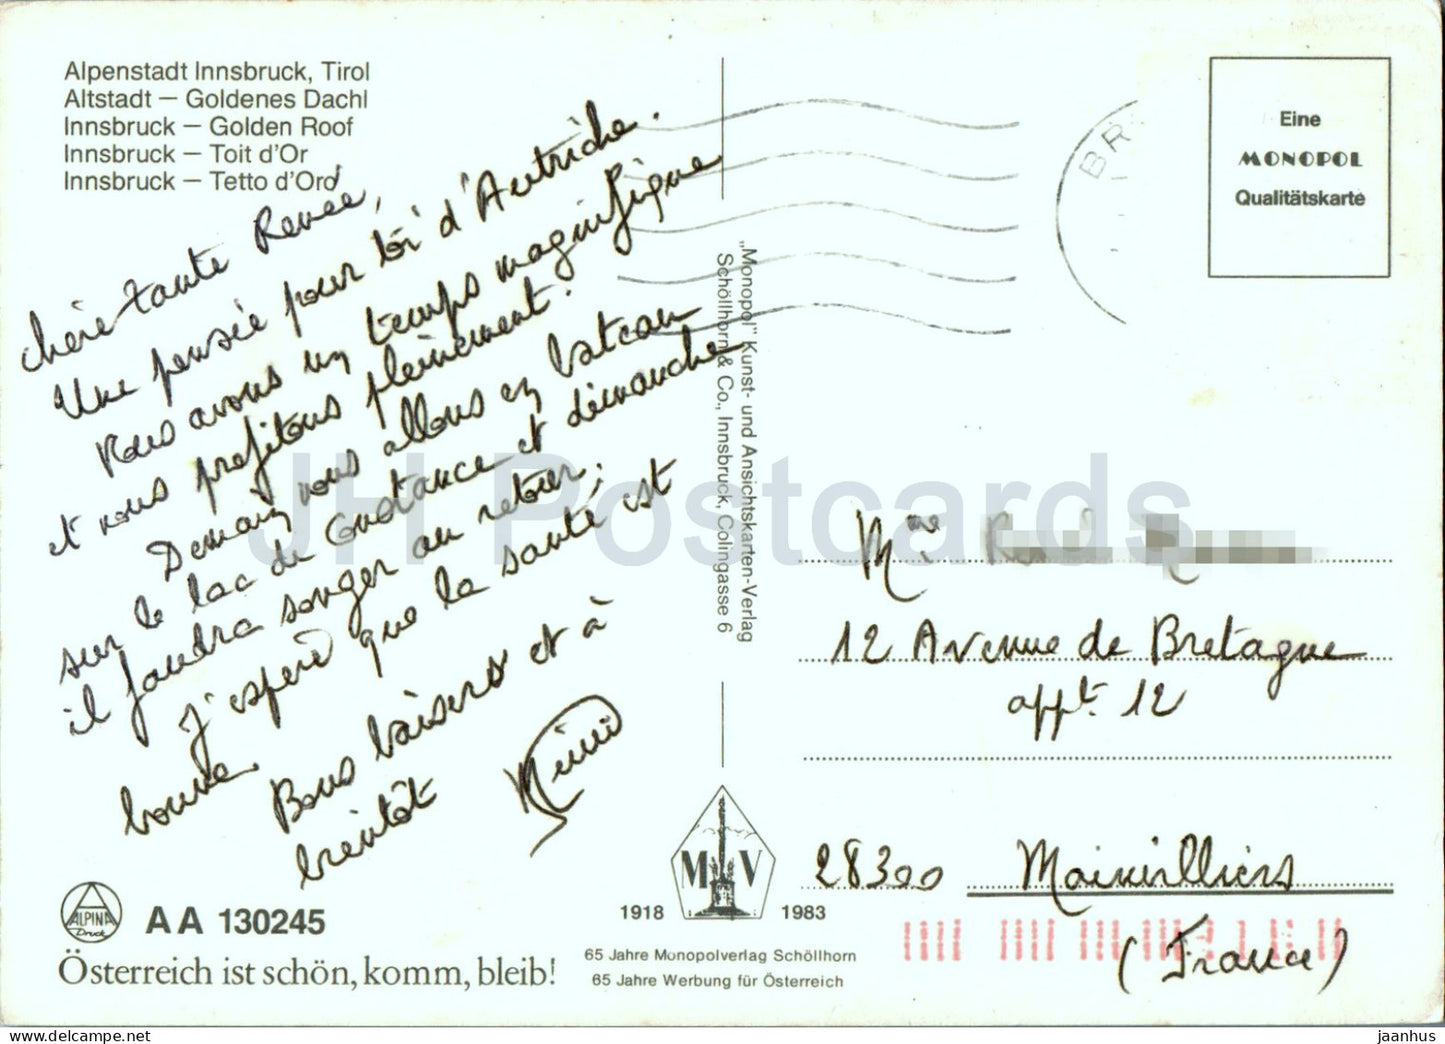 Alpenstadt Innsbruck, Tirol
Altstadt – Goldenes Dachl
Innsbruck – Golden Roof
Innsbruck – Toit d'Or
Innsbruck – Tetto d'Oro
chère tante Renée,
Une pensée pour toi d'Autriche.
Nous avons un temps magnifique
et nous profitons pleinement.
Demain nous allons en bateau
sur le lac de Constance et dimanche
il faudra songer au retour.
J'espère que la santé est
bonne.
Bons baisers et à
bientôt
Mimi
ALPINA
Druck
AA 130245
Österreich ist schön, komm, bleib!
„Monopol" Kunst- und Ansichtskarten-Verlag
Schöllhorn & Co., Innsbruck, Colingasse 6
M V
1918 1983
65 Jahre Monopolverlag Schöllhorn
65 Jahre Werbung für Österreich
BR
Eine
MONOPOL
Qualitätskarte
Mme
12 Avenue de Bretagne
appt. 12
28300 Mainvilliers
(France)
JH Postcards
jaanhus